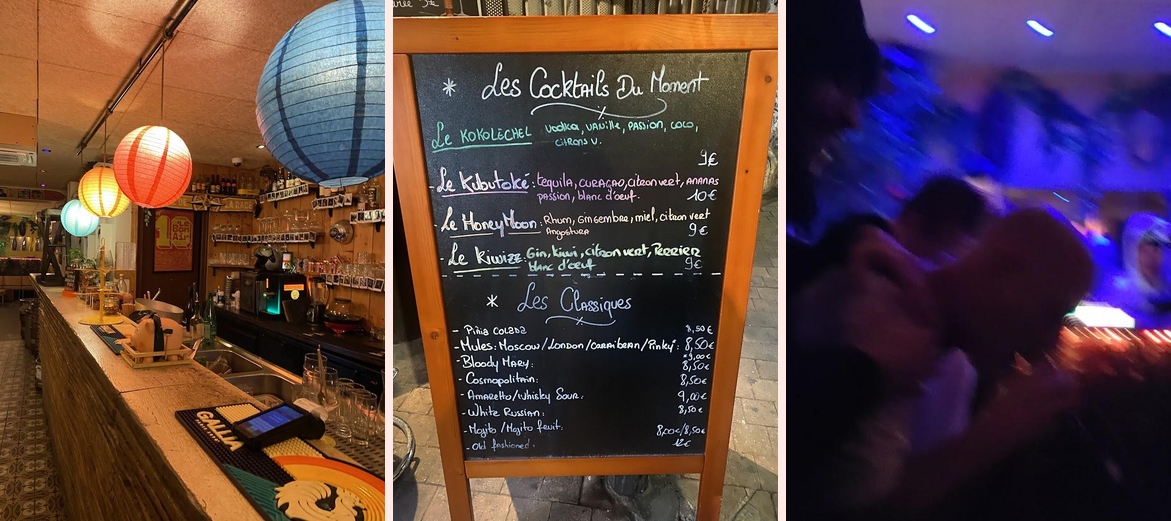 GALLIA
* Les Cocktails Du Moment
Le KOKOLECHEL vodka, vanille, passion, coco,
citrons v.
9€
- Le Kubutoké: tequila, curaçao, citron vert, ananas
passion, blanc d'oeuf. 10€
- Le HoneyMoon: Rhum, Gingembre, miel, citron vert
Angostura 9€
- Le Kiwize: Gin, kiwi, citron vert, Perrier
blanc d'oeuf 9€
* Les Classiques
- Piña colada 8,50€
- Mules: Moscow/London/Caraibean/Pinky: 8,50€
- Bloody Mary: 8,50€
- Cosmopolitain: 8,50€
- Amaretto/Whisky Sour: 9,00€
- White Russian: 8,50€
- Mojito/Mojito fruit: 8,00€/8,50€
- Old fashioned. 12€